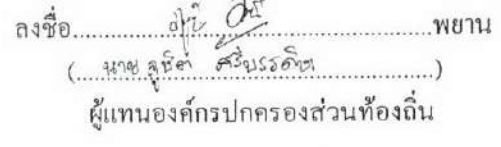 ลงชื่อ....................................................พยาน
(....นาย จูฮิต ศรีบรรดิษ....)
ผู้แทนองค์กรปกครองส่วนท้องถิ่น